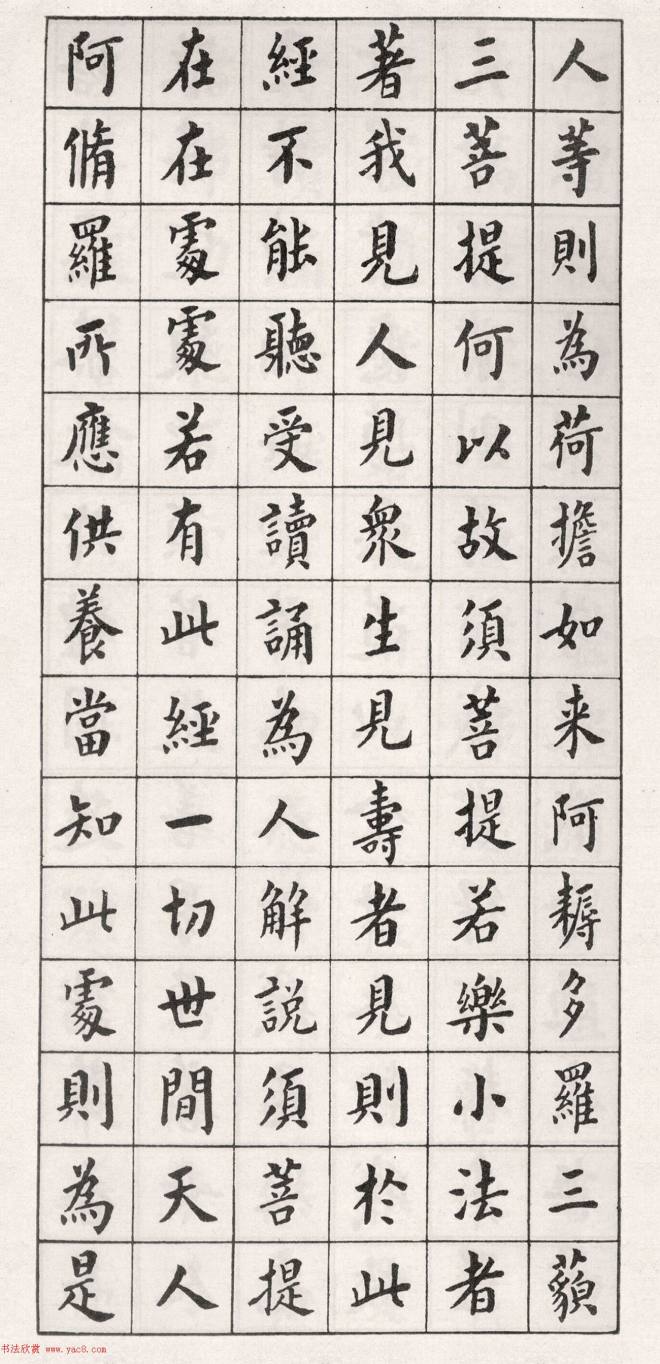 人等則為荷擔如来阿耨多羅三藐
三菩提何以故須菩提若樂小法者
著我見人見衆生見壽者見則於此
經不能聽受讀誦為人解説須菩提
在在處處若有此經一切世間天人
阿脩羅所應供養當知此處則為是
书法欣赏 www.yac8.com